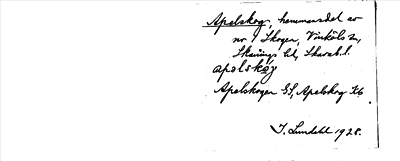 Apelskog, hemmansdel av
nr 1 Skogen, Vinköls sn,
Skånings hd, Skarab. l.
apəlskøj
Apelskogen GS, Apelskog Kb
J. Lundahl 1928.